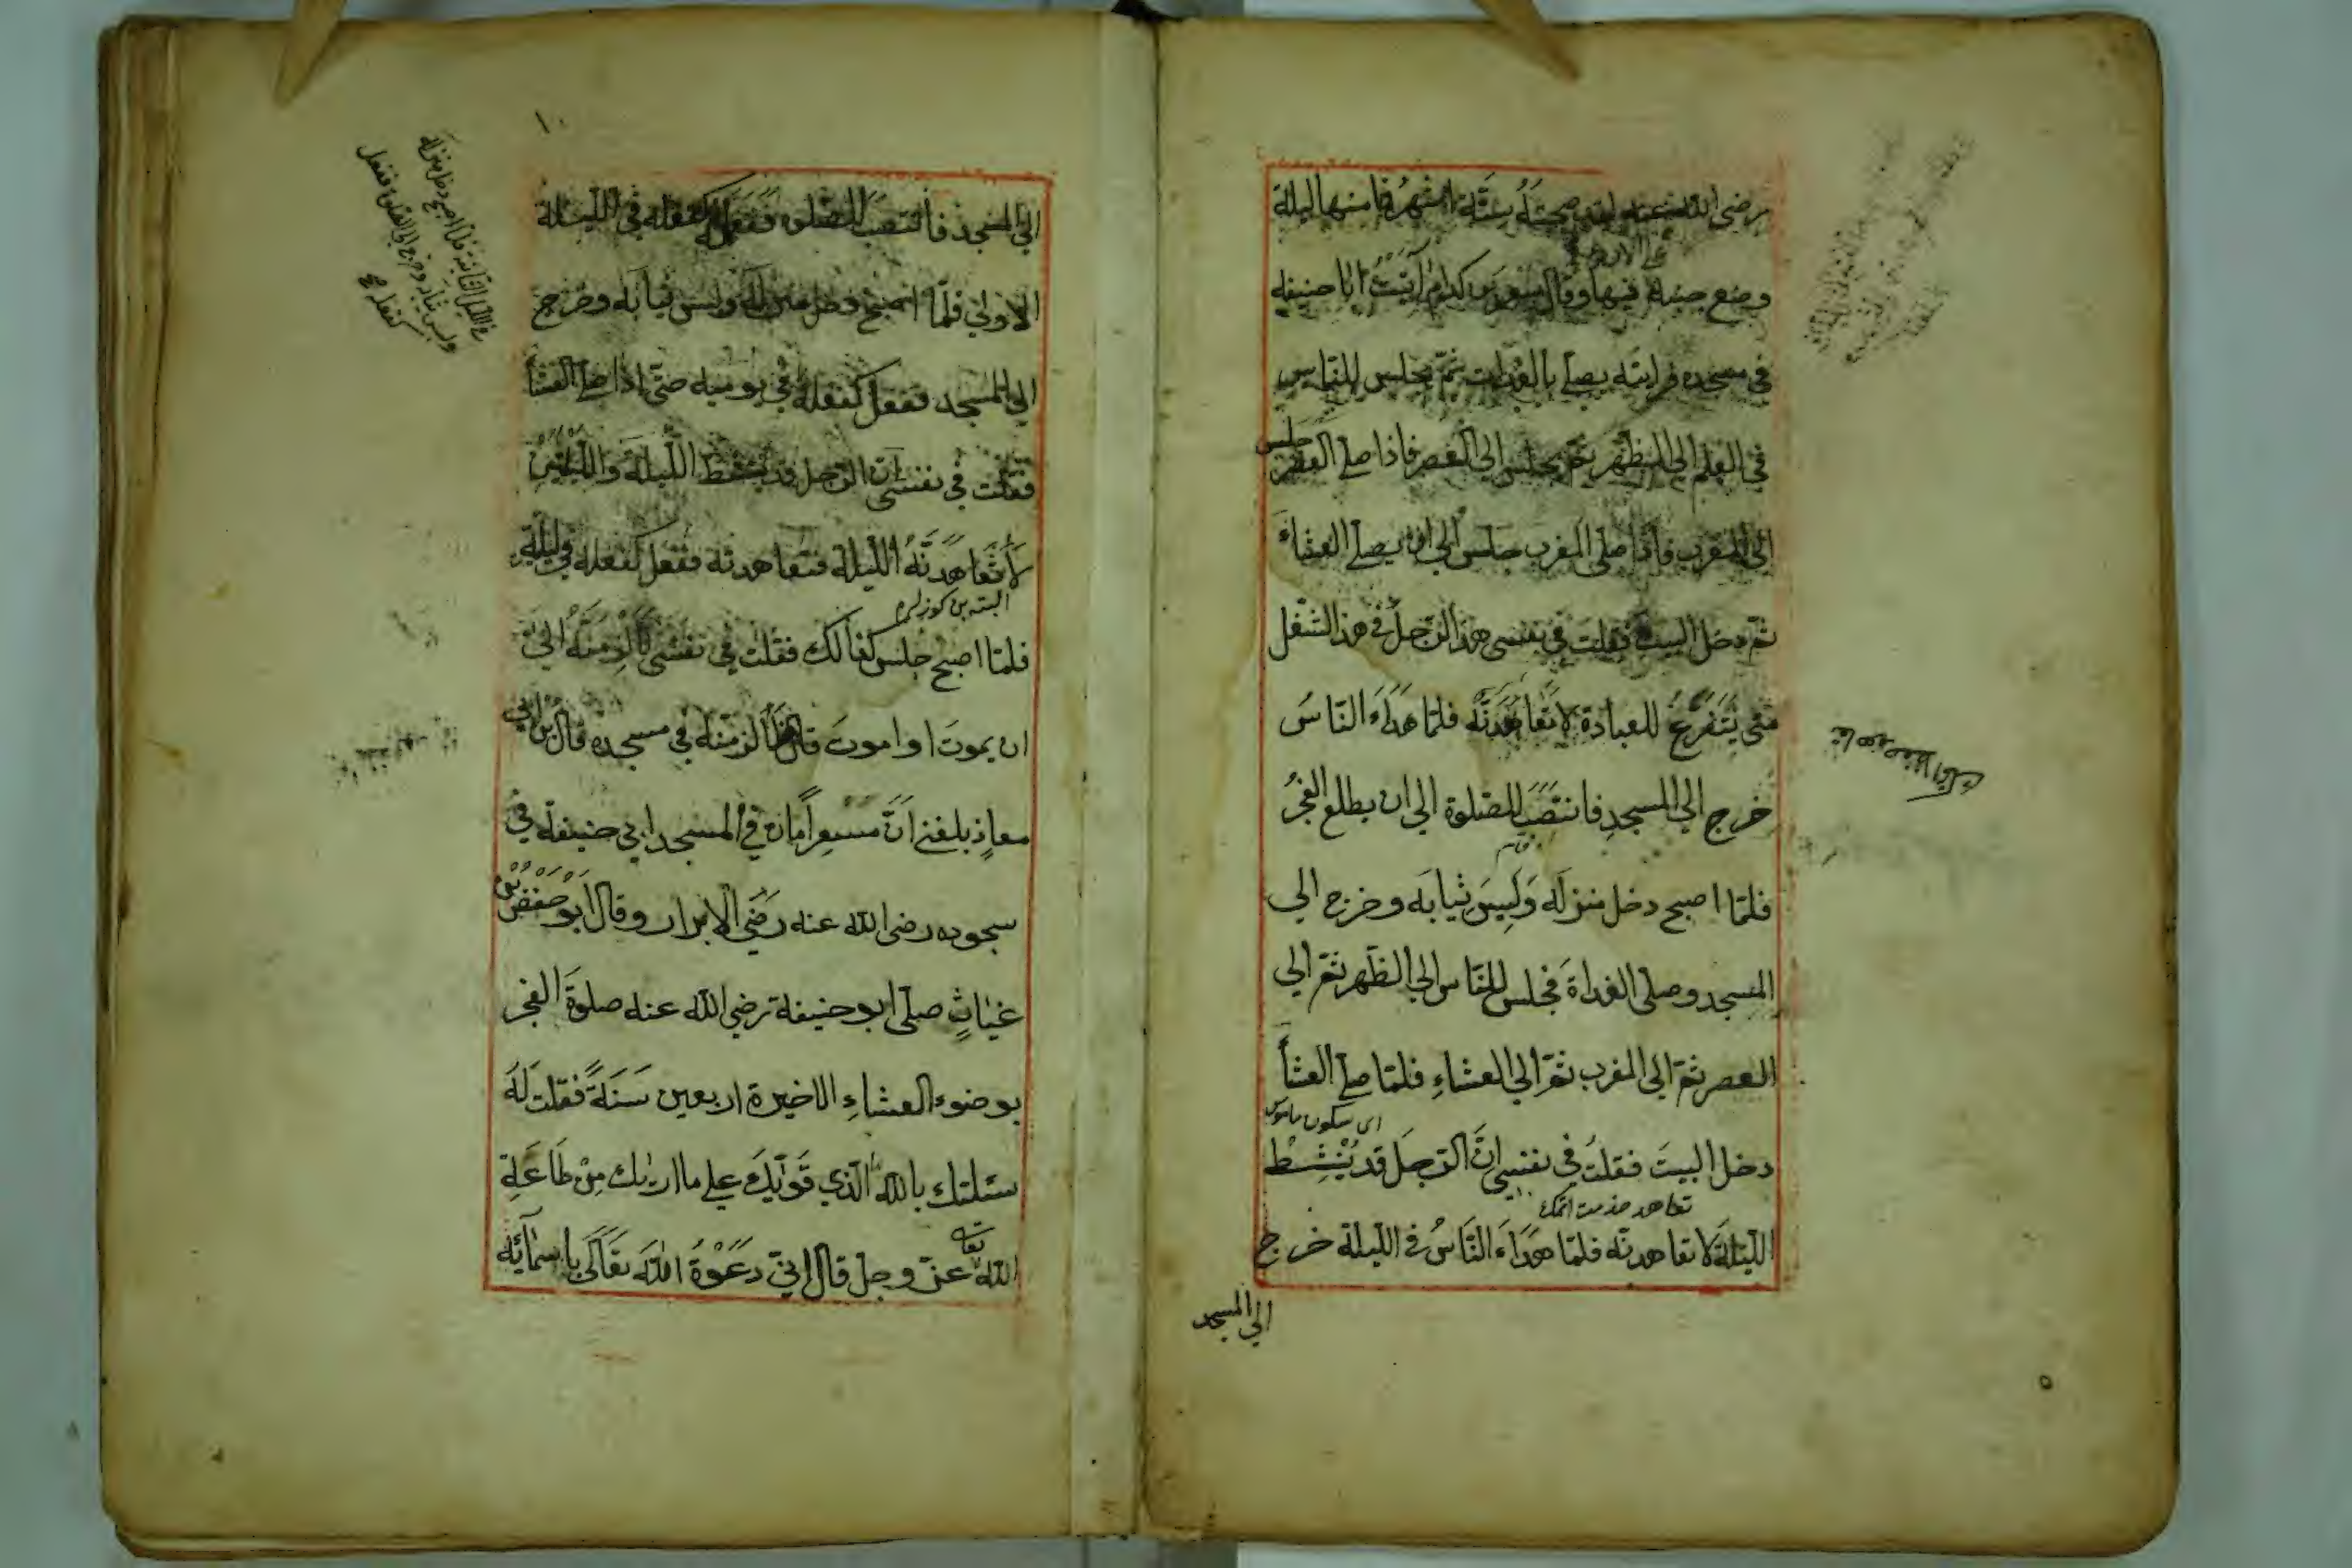 رضى الله عنه لقد صحبته ستة اشهر فما منها ليلة
على الارض
وضع جنبه فيها وقال مسعر بن كدام اتيت ابا حنيفه
في مسجده فرايته يصلي بالغداة ثم يجلس للناس
في العلم الى الظهر ثم يجلس الى العصر فاذا صلى العصر جلس
الى المغرب فاذا صلى المغرب جلس الى ان يصلي العشاء
ثم دخل البيت فقلت في نفسي هذ الرجل في هذ الشغل
متى يَتَفَرَّغُ للعبادة لاتعاهدنّه فلمّا هداء الناسُ
خرج الي المسجدِ فانتصَبَ للصّلوة الي ان يطلع الفجرُ
فلمّا اصبح دخل منزلَه وَلَبِسَ ثيابَه وخرج الي
المسجد وصلى الغداةَ فجلس للنّاس الي الظهر ثمّ الي
العصر ثمّ الي المغرب ثمّ الي العشاءِ فلمّا صلى العشأ
اى سكون
دخل البيتَ فقلتُ في نفسي انَّ الرّجلَ قد يُنْشِطْ
تعاهد خدمت اتمك
اللّيلةَ لاتعاهدنّه فلمّا هداءَ النّاسُ في الليلة خرج
الي المسجد
٥
١٠
الي المسجد فانتصب للصّلوة ففعل كفعله في الليلة
الاولي فلمّا اصبح دخل منزله ولبس ثيابه وخرج
الي المسجد ففعل كفعله في يوميه حتّى اذا صلى العشأ
فقلت في نفسي ان الرّجل قد ينشط الليلة والليلتين
لأتعاهدنّهُ الليلة فتعاهدته ففعل كفعله في ليلته
البته بن كوزلرم
فلمّا اصبح جلس كذالك فقلت في نفسي لألزمنّه الي
ان يموت او اموت قال فلازمته في مسجده قال بن ابي
معاذٍ بلغني انَّ مسعراً مات في المسجد ابي حنيفة في
سجوده رضى الله عنه رَضيَ الابرار وقال ابو حفص بن
غياثٍ صلى ابو حنيفة رضي الله عنه صلوةَ الفجر
بوضوء العشاءِ الاخيرة اربعين سَنَةً فقلت لَهُ
سئلتك بالله الّذي قَوّيكَ علي ما اريك مِنْ طاعَةِ
تعا
الله عزّ وجلّ قال انّي دَعَوْتُ اللهَ تعَالَى باسمآئِه
في الليل الثانية فلما اصبح دخل منزله
ولبس ثيابه وخرج الى الصلوة ففعل
كفعله صح